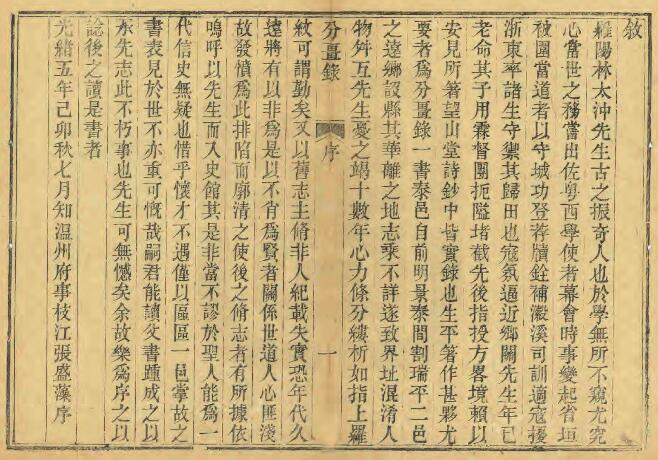 敘
羅陽林太沖先生古之振奇人也於學無所不窺尤究
心當世之務嘗出佐粵西學使者幕會時事變起省垣
被圍當道者以守城功登薦牘銓補瀫溪司訓適寇擾
浙東率諸生守禦其歸田也寇氛逼近鄉關先生年已
老命其子用霖督團扼隘堵截先後指授方畧境賴以
安見所著望山堂詩鈔中皆實錄也生平著作甚夥尤
要者爲分疆錄一書泰邑自前明景泰間割瑞平二邑
之遠鄉設縣其華離之地志乘不詳遂致界址混淆人
物舛互先生憂之竭十數年心力條分縷析如指上羅
分疆錄 序 一
紋可謂勤矣又以舊志主脩非人紀載失實恐年代久
遠將有以非爲是以不肖爲賢者關係世道人心匪淺
故發憤爲此排陷而廓清之使後之脩志者有所據依
嗚呼以先生而入史館其是非當不謬於聖人能爲一
代信史無疑也惜乎懷才不遇僅以區區一邑掌故之
書表見於世不亦重可慨哉嗣君能讀父書踵成之以
承先志此不朽事也先生可無憾矣余故樂爲序之以
諗後之讀是書者
光緒五年己卯秋七月知温州府事枝江張盛藻序